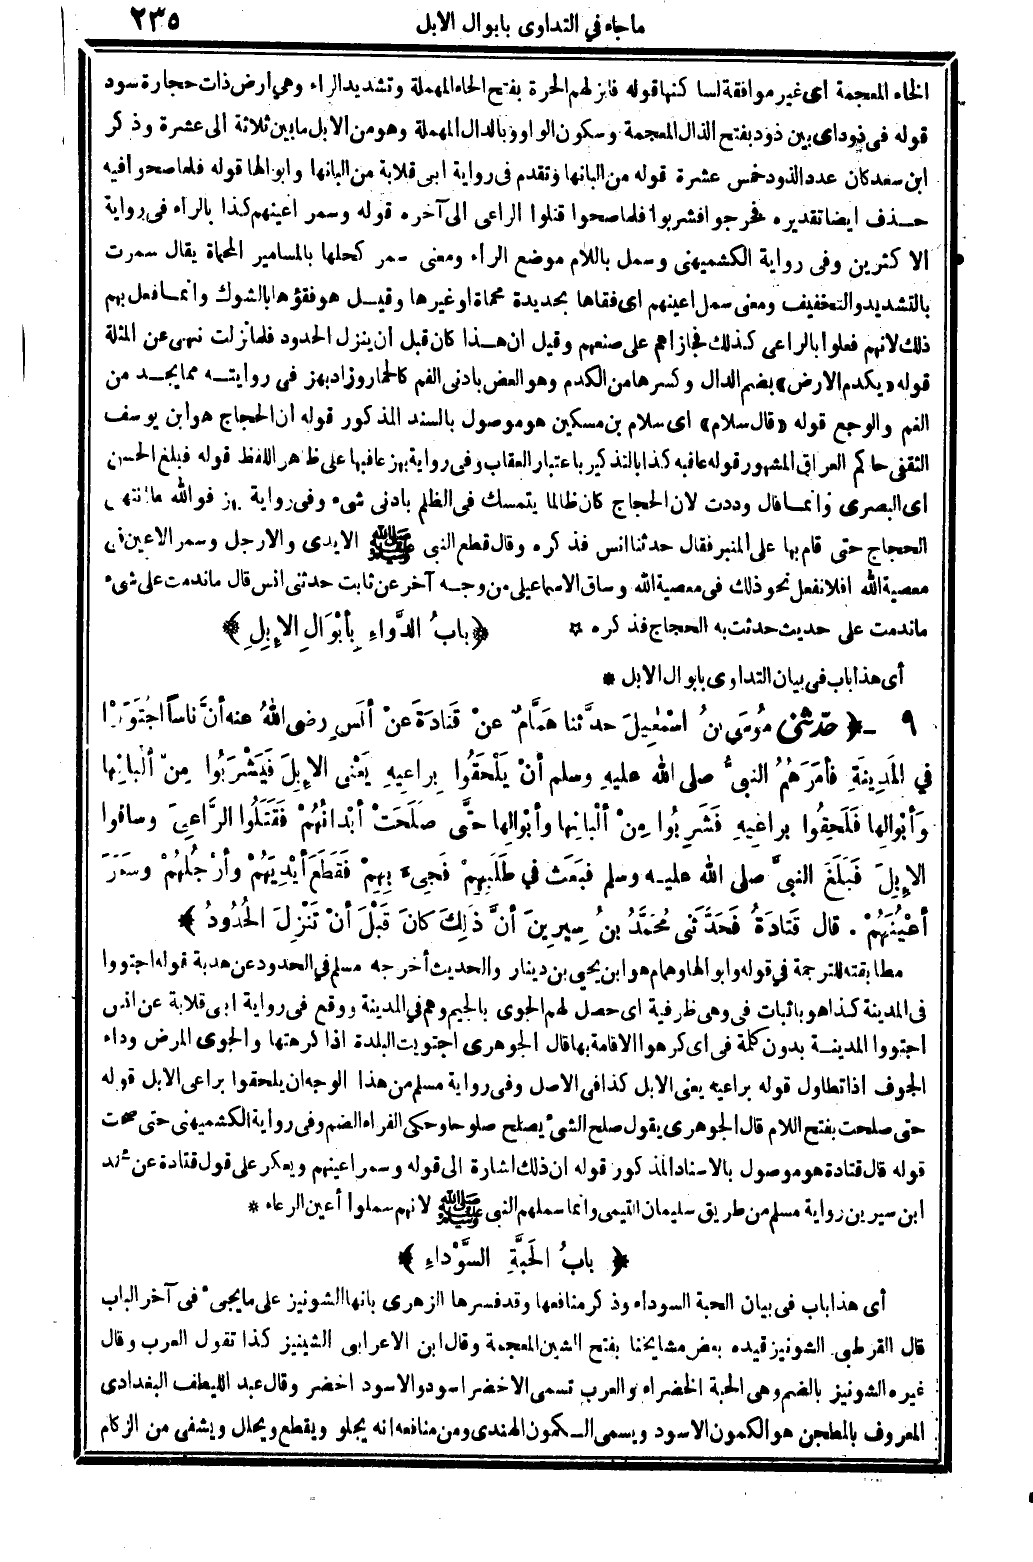 ما جاء في التداوى بابوال الابل
٢٣٥
الخاء المعجمة اى غير موافقة لساكنها قوله فانزلهم الحرة بفتح الحاء المهملة وتشديد الراء وهي ارض ذات حجارة سود
قوله فى ذود اى بين ذود بفتح الذال المعجمة وسكون الواو وبالدال المهملة وهو من الابل ما بين ثلاثة الى عشرة وذكر
ابن سعد كان عدد الذود خمس عشرة قوله من البانها وتقدم فى رواية ابى قلابة من البانها وابوالها قوله فلما صحوا فيه
حذف ايضا تقديره فخرجوا فشربوا فلما صحوا قتلوا الراعى الى آخره قوله وسمر اعينهم كذا بالراء فى رواية
الاكثرين وفى رواية الكشميهنى وسمل باللام موضع الراء ومعنى سمر كحلها بالمسامير المحماة يقال سمرت
بالتشديد والتخفيف ومعنى سمل اعينهم اى فقاها بحديدة محماة او غيرها وقيل هو فقؤها بالشوك وانما فعل بهم
ذلك لانهم فعلوا بالراعى كذلك فجازاهم على صنعهم وقيل ان هذا كان قبل ان ينزل الحدود فلما نزلت نهى عن المثلة
قوله «يكدم الارض» بضم الدال وكسرها من الكدم وهو العض بادنى الفم كالحمار وزاد بهز فى روايته مما يجد من
الغم والوجع قوله «قال سلام» اى سلام بن مسكين هو موصول بالسند المذكور قوله ان الحجاج هو ابن يوسف
الثقفى حاكم العراق المشهور قوله عاقبه كذا بالتذكير باعتبار العقاب وفى رواية بهز عاقبها على ظاهر اللفظ قوله فبلغ الحسن
اى البصرى وانما قال وددت لان الحجاج كان ظالما يتمسك فى الظلم بادنى شىء وفى رواية بهز فوالله ما انتهى
الحجاج حتى قام بها على المنبر فقال حدثنا انس فذكره وقال قطع النبى ﷺ الايدى والارجل وسمر الاعين فى
معصية الله افلا نفعل نحو ذلك فى معصية الله وساق الاسماعيلى من وجه آخر عن ثابت حدثنى انس قال ما ندمت على شىء
ما ندمت على حديث حدثت به الحجاج فذكره ☆ ﴿ بابُ الدَّواءِ بِأبْوَالِ الإِبِلِ ﴾
أى هذا باب فى بيان التداوى بابوال الابل *
٩ - ﴿ حدّثنى مُوسَى بنُ اسْمٰعِيلَ حدّثنا هَمَّامٌ عنْ قَتادَةَ عنْ أنَسٍ رضى اللهُ عنه أنَّ ناساً اجْتَوَوْا
في المَدِينَةِ فأمَرَهُمُ النبىُّ صلى الله عليه وسلم أنْ يَلْحَقُوا بِراعِيهِ يَعْنى الإِبِلَ فَيَشْرَبُوا مِنْ ألْبانِها
وَأبْوالِها فَلَحِقُوا بِراعِيهِ فَشَرِبُوا مِنْ ألْبانِها وأبْوالِها حتَّى صَلَحَتْ أبْدانُهُمْ فَقَتَلُوا الرَّاعِىَ وساقوا
الإِبِلَ فَبَلَغَ النبىَّ صلى الله عليه وسلم فبَعَثَ فى طَلَبِهِمْ فَجِىءَ بِهِمْ فَقَطَعَ أيْدِيَهُمْ وأرْجُلَهُمْ وسَمَرَ
أعْيُنَهُمْ . قال قَتادَةُ فَحَدَّثنى مُحَمَّدُ بنُ سِيرِينَ أنَّ ذٰلِكَ كانَ قَبْلَ أنْ تَنْزِلَ الحُدُودُ ﴾
مطابقته للترجمة في قوله وابوالها وهمام هو ابن يحيى بن دينار والحديث أخرجه مسلم في الحدود عن هدبة قوله اجتووا
فى المدينة كذا هو باثبات فى وهى ظرفية اى حصل لهم الجوى بالجيم وهم في المدينة ووقع فى رواية ابى قلابة عن انس
اجتووا المدينة بدون كلمة فى اى كرهوا الاقامة بها قال الجوهرى اجتويت البلدة اذا كرهتها والجوى المرض وداء
الجوف اذا تطاول قوله براعيه يعنى الابل كذا فى الاصل وفى رواية مسلم من هذا الوجه ان يلحقوا براعى الابل قوله
حتى صلحت بفتح اللام قال الجوهرى يقول صلح الشئ يصلح صلوحا وحكى الفراء الضم وفى رواية الكشميهنى حتى صحت
قوله قال قتادة هو موصول بالاسناد المذكور قوله ان ذلك اشارة الى قوله وسمر اعينهم ويعكر على قول قتادة عن محمد
ابن سيرين رواية مسلم من طريق سليمان التيمى وانما سملهم النبى ﷺ لانهم سملوا أعين الرعاء *
﴿ بابُ الحَبَّةِ السَّوْداءِ ﴾
أى هذا باب فى بيان الحبة السوداء وذكر منافعها وقد فسرها الزهرى بانها الشونيز على ما يجىء فى آخر الباب
قال القرطبى الشونيز قيده بعض مشايخنا بفتح الشين المعجمة وقال ابن الاعرابى الشينيز كذا تقول العرب وقال
غيره الشونيز بالضم وهى الحبة الخضراء والعرب تسمى الاخضر اسود والاسود اخضر وقال عبد اللطيف البغدادى
المعروف بالمطجن هو الكمون الاسود ويسمى الكمون الهندى ومن منافعه انه يجلو ويقطع ويحلل ويشفى من الزكام